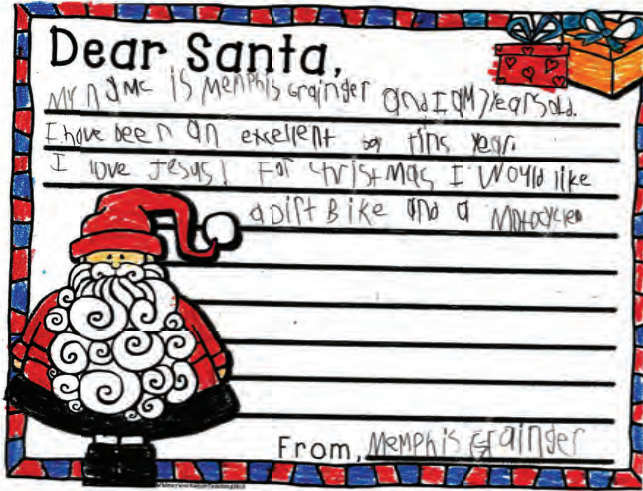 Dear Santa,
My name is Memphis Grainger and I am 7 years old.
I have been an excellent boy this year.
I love Jesus! For Christmas I would like
a Dirt Bike and a
From, Memphis Grainger